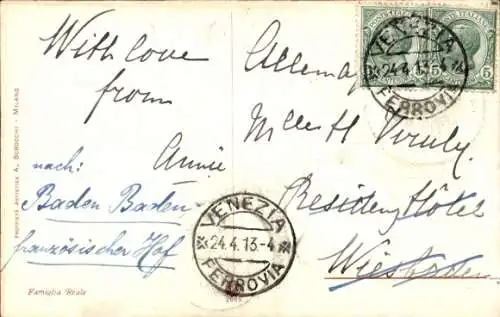 With love
from
Annie
nach:
Baden Baden
französischer Hof
Allemag
Residenz Hôtel
Wiesbaden
VENEZIA
24.4.13-4
FERROVIA
VENEZIA
24.4.13-4
FERROVIA
POSTE ITALIANE
5
5
PROPRIETÀ ARTISTICA A. BORDOCHI - MILANO
Famiglia Reale